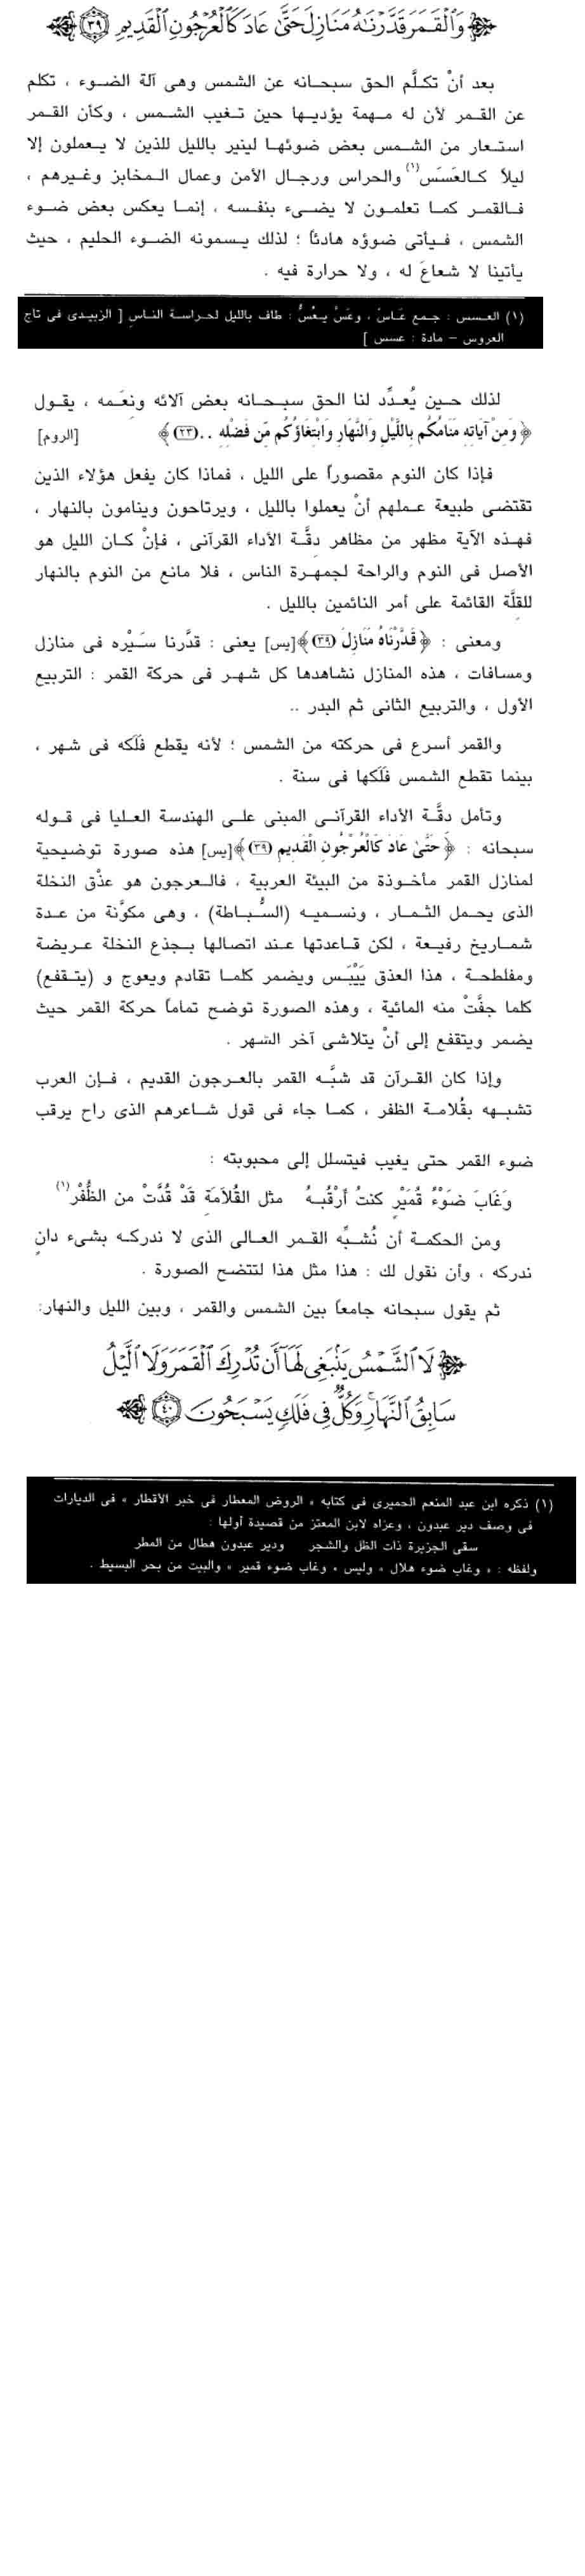 وَٱلْقَمَرَ قَدَّرْنَٰهُ مَنَازِلَ حَتَّىٰ عَادَ كَٱلْعُرْجُونِ ٱلْقَدِيمِ ٣٩
بعد أنْ تكلَّم الحق سبحانه عن الشمس وهى آلة الضوء ، تكلم
عن القمر لأن له مهمة يؤديها حين تغيب الشمس ، وكأن القمر
استعار من الشمس بعض ضوئها لينير بالليل للذين لا يعملون إلا
ليلاً كالعَسَس(١) والحراس ورجال الأمن وعمال المخابز وغيرهم ،
فالقمر كما تعلمون لا يضىء بنفسه ، إنما يعكس بعض ضوء
الشمس ، فيأتى ضوؤه هادئاً ؛ لذلك يسمونه الضوء الحليم ، حيث
يأتينا لا شعاعَ له ، ولا حرارة فيه .
(١) العسس : جمع عَاسّ ، وعَسَّ يعُسُّ : طاف بالليل لحراسة الناسِ [ الزبيدى فى تاج
العروس – مادة : عسس ]
لذلك حين يُعدِّد لنا الحق سبحانه بعض آلائه ونِعَمه ، يقول
﴿ وَمِنْ آيَاتِهِ مَنَامُكُم بِاللَّيْلِ وَالنَّهَارِ وَابْتِغَاؤُكُم مِّن فَضْلِهِ .. (٢٣) ﴾ [الروم]
فإذا كان النوم مقصوراً على الليل ، فماذا كان يفعل هؤلاء الذين
تقتضى طبيعة عملهم أنْ يعملوا بالليل ، ويرتاحون وينامون بالنهار ،
فهذه الآية مظهر من مظاهر دِقَّة الأداء القرآنى ، فإنْ كان الليل هو
الأصل فى النوم والراحة لجمهرة الناس ، فلا مانع من النوم بالنهار
للقِلَّة القائمة على أمر النائمين بالليل .
ومعنى : ﴿ قَدَّرْنَاهُ مَنَازِلَ (٣٩) ﴾ [يس] يعنى : قدَّرنا سَيْره فى منازل
ومسافات ، هذه المنازل نشاهدها كل شهر فى حركة القمر : التربيع
الأول ، والتربيع الثانى ثم البدر ..
والقمر أسرع فى حركته من الشمس ؛ لأنه يقطع فَلَكه فى شهر ،
بينما تقطع الشمس فَلَكها فى سنة .
وتأمل دقَّة الأداء القرآنى المبنى على الهندسة العليا فى قوله
سبحانه : ﴿ حَتَّىٰ عَادَ كَالْعُرْجُونِ الْقَدِيمِ (٣٩) ﴾ [يس] هذه صورة توضيحية
لمنازل القمر مأخوذة من البيئة العربية ، فالعرجون هو عذْق النخلة
الذى يحمل الثمار ، ونسميه (السُّباطة) ، وهى مكوَّنة من عدة
شماريخ رفيعة ، لكن قاعدتها عند اتصالها بجذع النخلة عريضة
ومفلطحة ، هذا العذق يَيْبَس ويضمر كلما تقادم ويعوج و (يتقفع)
كلما جفَّتْ منه المائية ، وهذه الصورة توضح تماماً حركة القمر حيث
يضمر ويتقفع إلى أنْ يتلاشى آخر الشهر .
وإذا كان القرآن قد شبَّه القمر بالعرجون القديم ، فإن العرب
تشبهه بقُلامة الظفر ، كما جاء فى قول شاعرهم الذى راح يرقب
ضوء القمر حتى يغيب فيتسلل إلى محبوبته :
وَغَابَ ضَوْءُ قُمَيْرٍ كنتُ أرْقُبهُ مثل القُلاَمَةِ قَدْ قُدَّتْ من الظُّفْر(١)
ومن الحكمة أن نُشبِّه القمر العالى الذى لا ندركه بشىء دانٍ
ندركه ، وأن نقول لك : هذا مثل هذا لتتضح الصورة .
ثم يقول سبحانه جامعاً بين الشمس والقمر ، وبين الليل والنهار:
لَا ٱلشَّمْسُ يَنۢبَغِى لَهَآ أَن تُدْرِكَ ٱلْقَمَرَ وَلَا ٱلَّيْلُ
سَابِقُ ٱلنَّهَارِ وَكُلٌّ فِى فَلَكٍ يَسْبَحُونَ ٤٠
(١) ذكره ابن عبد المنعم الحميرى فى كتابه « الروض المعطار فى خبر الأقطار » فى الديارات
فى وصف دير عبدون ، وعزاه لابن المعتز من قصيدة أولها :
سقى الجزيرة ذات الظل والشجر ودير عبدون هطال من المطر
ولفظه : « وغاب ضوء هلال » وليس « وغاب ضوء قمير » والبيت من بحر البسيط .